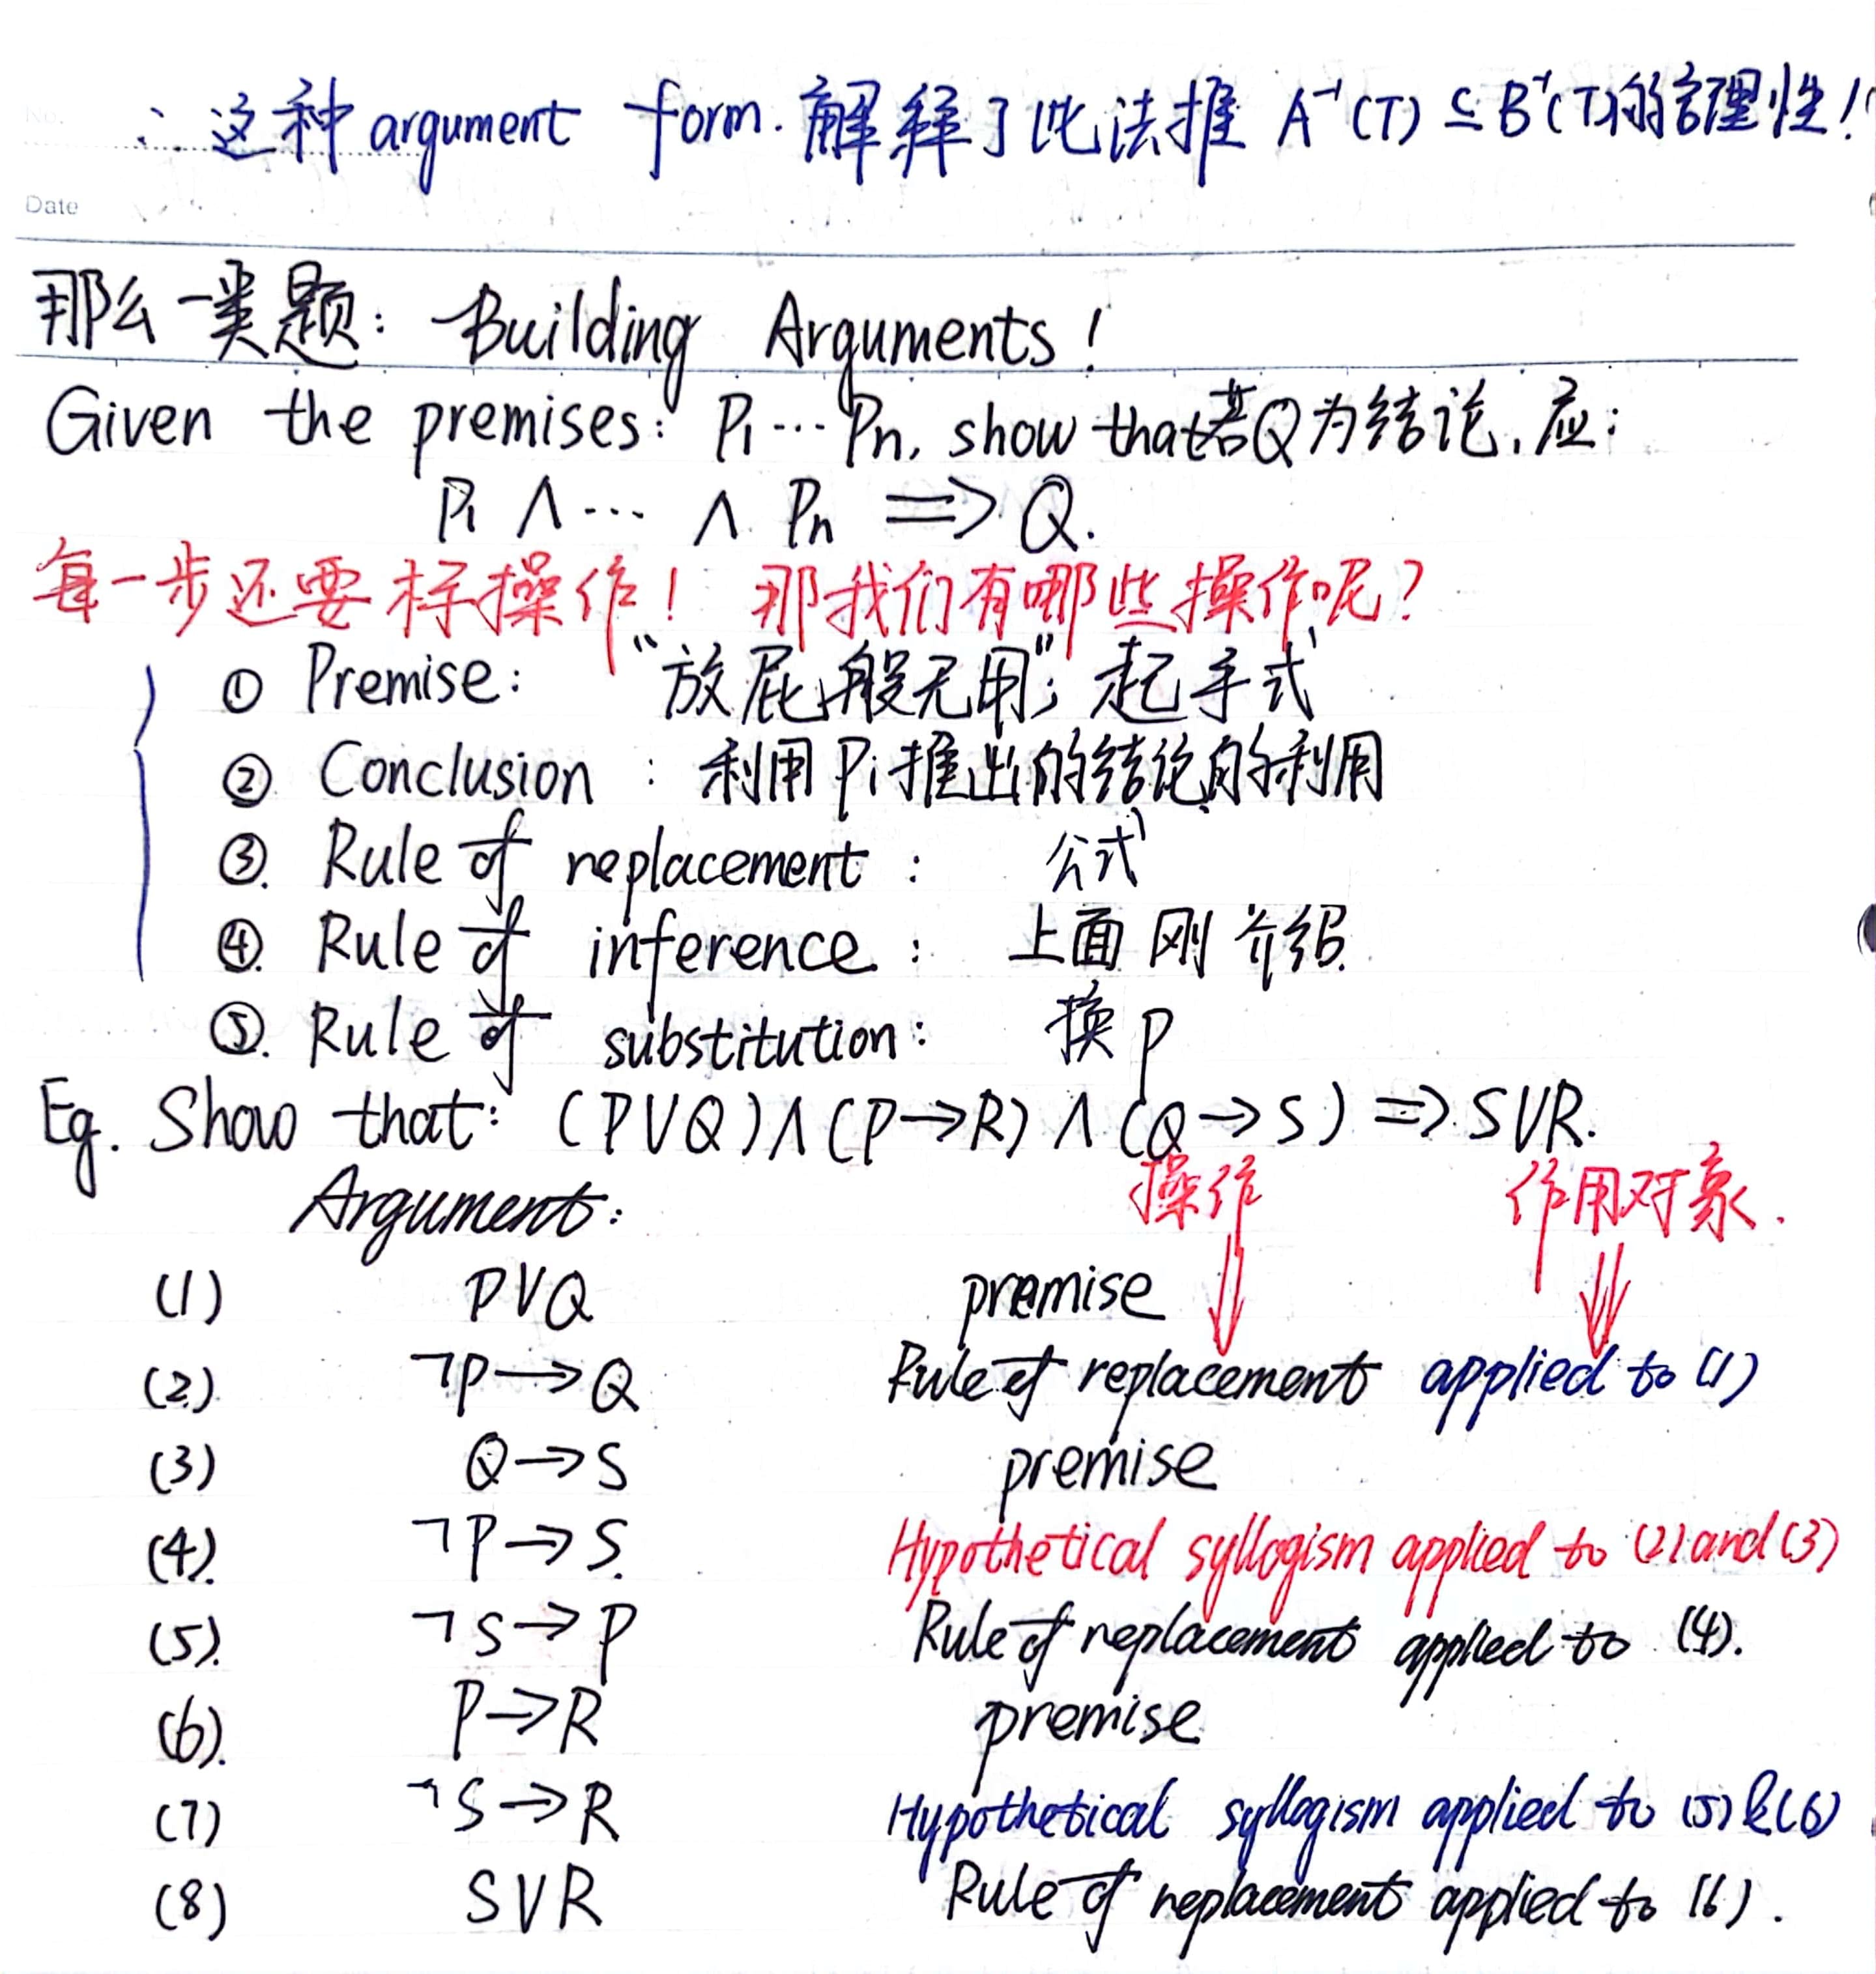 No.
∴ 这种 argument form. 解释了此法推 A⁻¹(T) ⊆ B⁻¹(T)的合理性!
Date
那么一类题: Building Arguments!
Given the premises: P₁ … Pn, show that若Q为结论, 应:
P₁ ∧ … ∧ Pn ⇒ Q.
每一步还要标操作! 那我们有哪些操作呢?
① Premise: “放屁般无用”; 起手式
② Conclusion : 利用Pi推出的结论的利用
③. Rule of replacement : 公式
④. Rule of inference : 上面刚介绍.
⑤. Rule of substitution: 换P
Eg. Show that: (P∨Q)∧(P→R)∧(Q→S) ⇒ S∨R.
Argument: 操作 作用对象.
(1) P∨Q premise
(2). ¬P→Q Rule of replacement applied to (1)
(3) Q→S premise
(4). ¬P→S. Hypothetical syllogism applied to (2) and (3)
(5). ¬S→P Rule of replacement applied to (4).
(6). P→R premise
(7) ¬S→R Hypothetical syllogism applied to (5) & (6)
(8) S∨R Rule of replacement applied to (6).